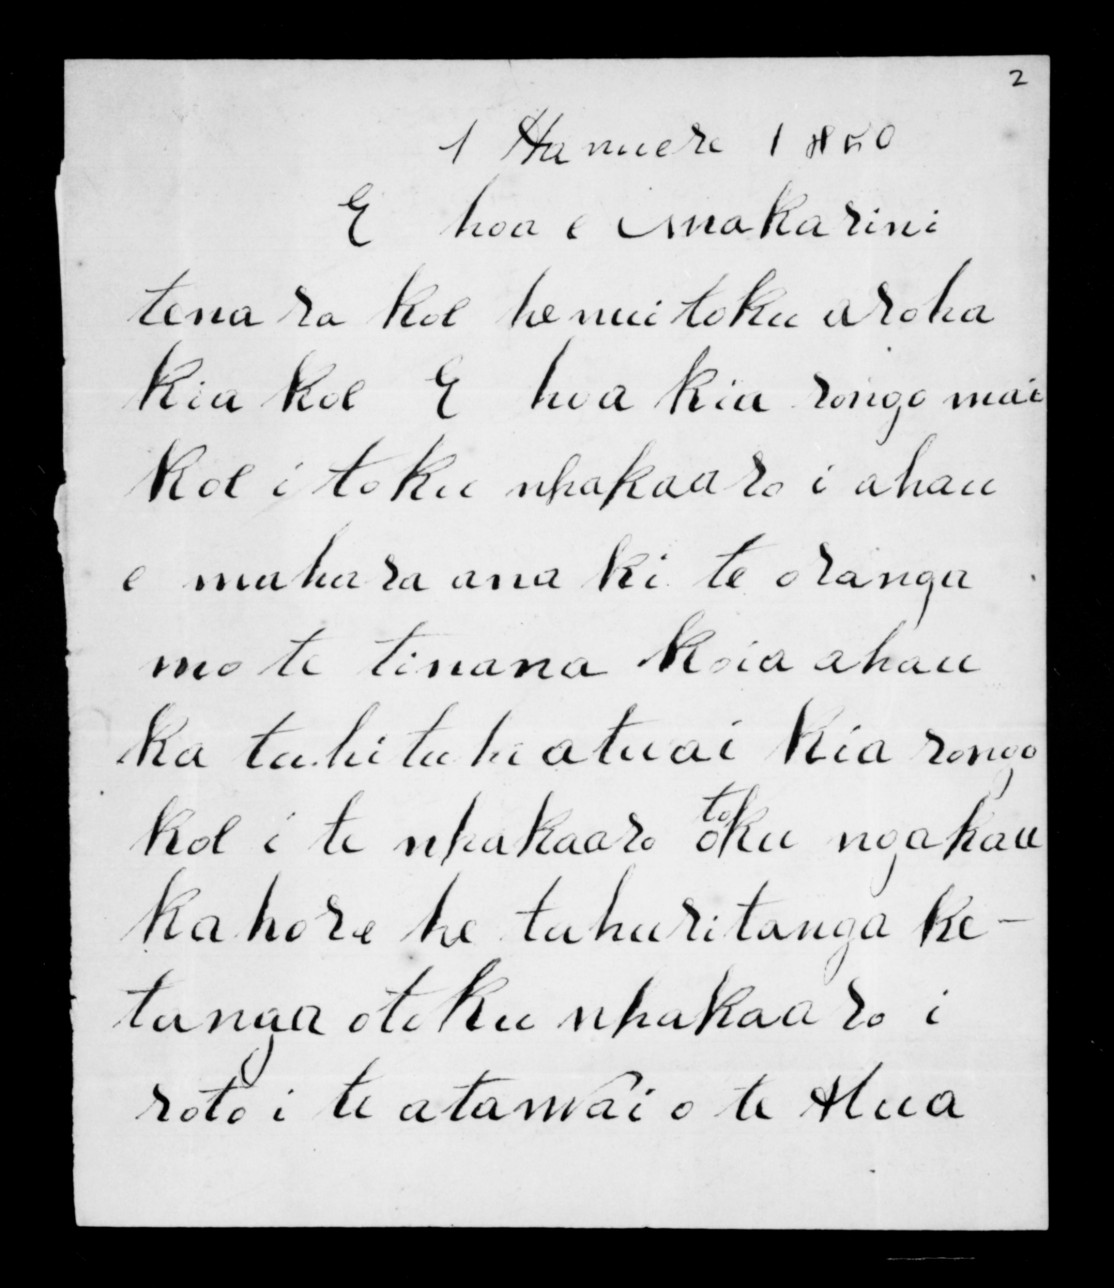 2
1 Hanuere 1850
E hoa e Makarini
tena ra koe he nui toku aroha
kia koe E hoa kia rongo mai
koe i toku whakaaro i ahau
e mahara ana ki te oranga
mo te tinana koia ahau
ka tuhituhi atu ai kia rongo
koe i te whakaaro o toku ngakau
kahore he tahuritanga ke-
tanga o toku whakaaro i
roto i te atawai o te Atua